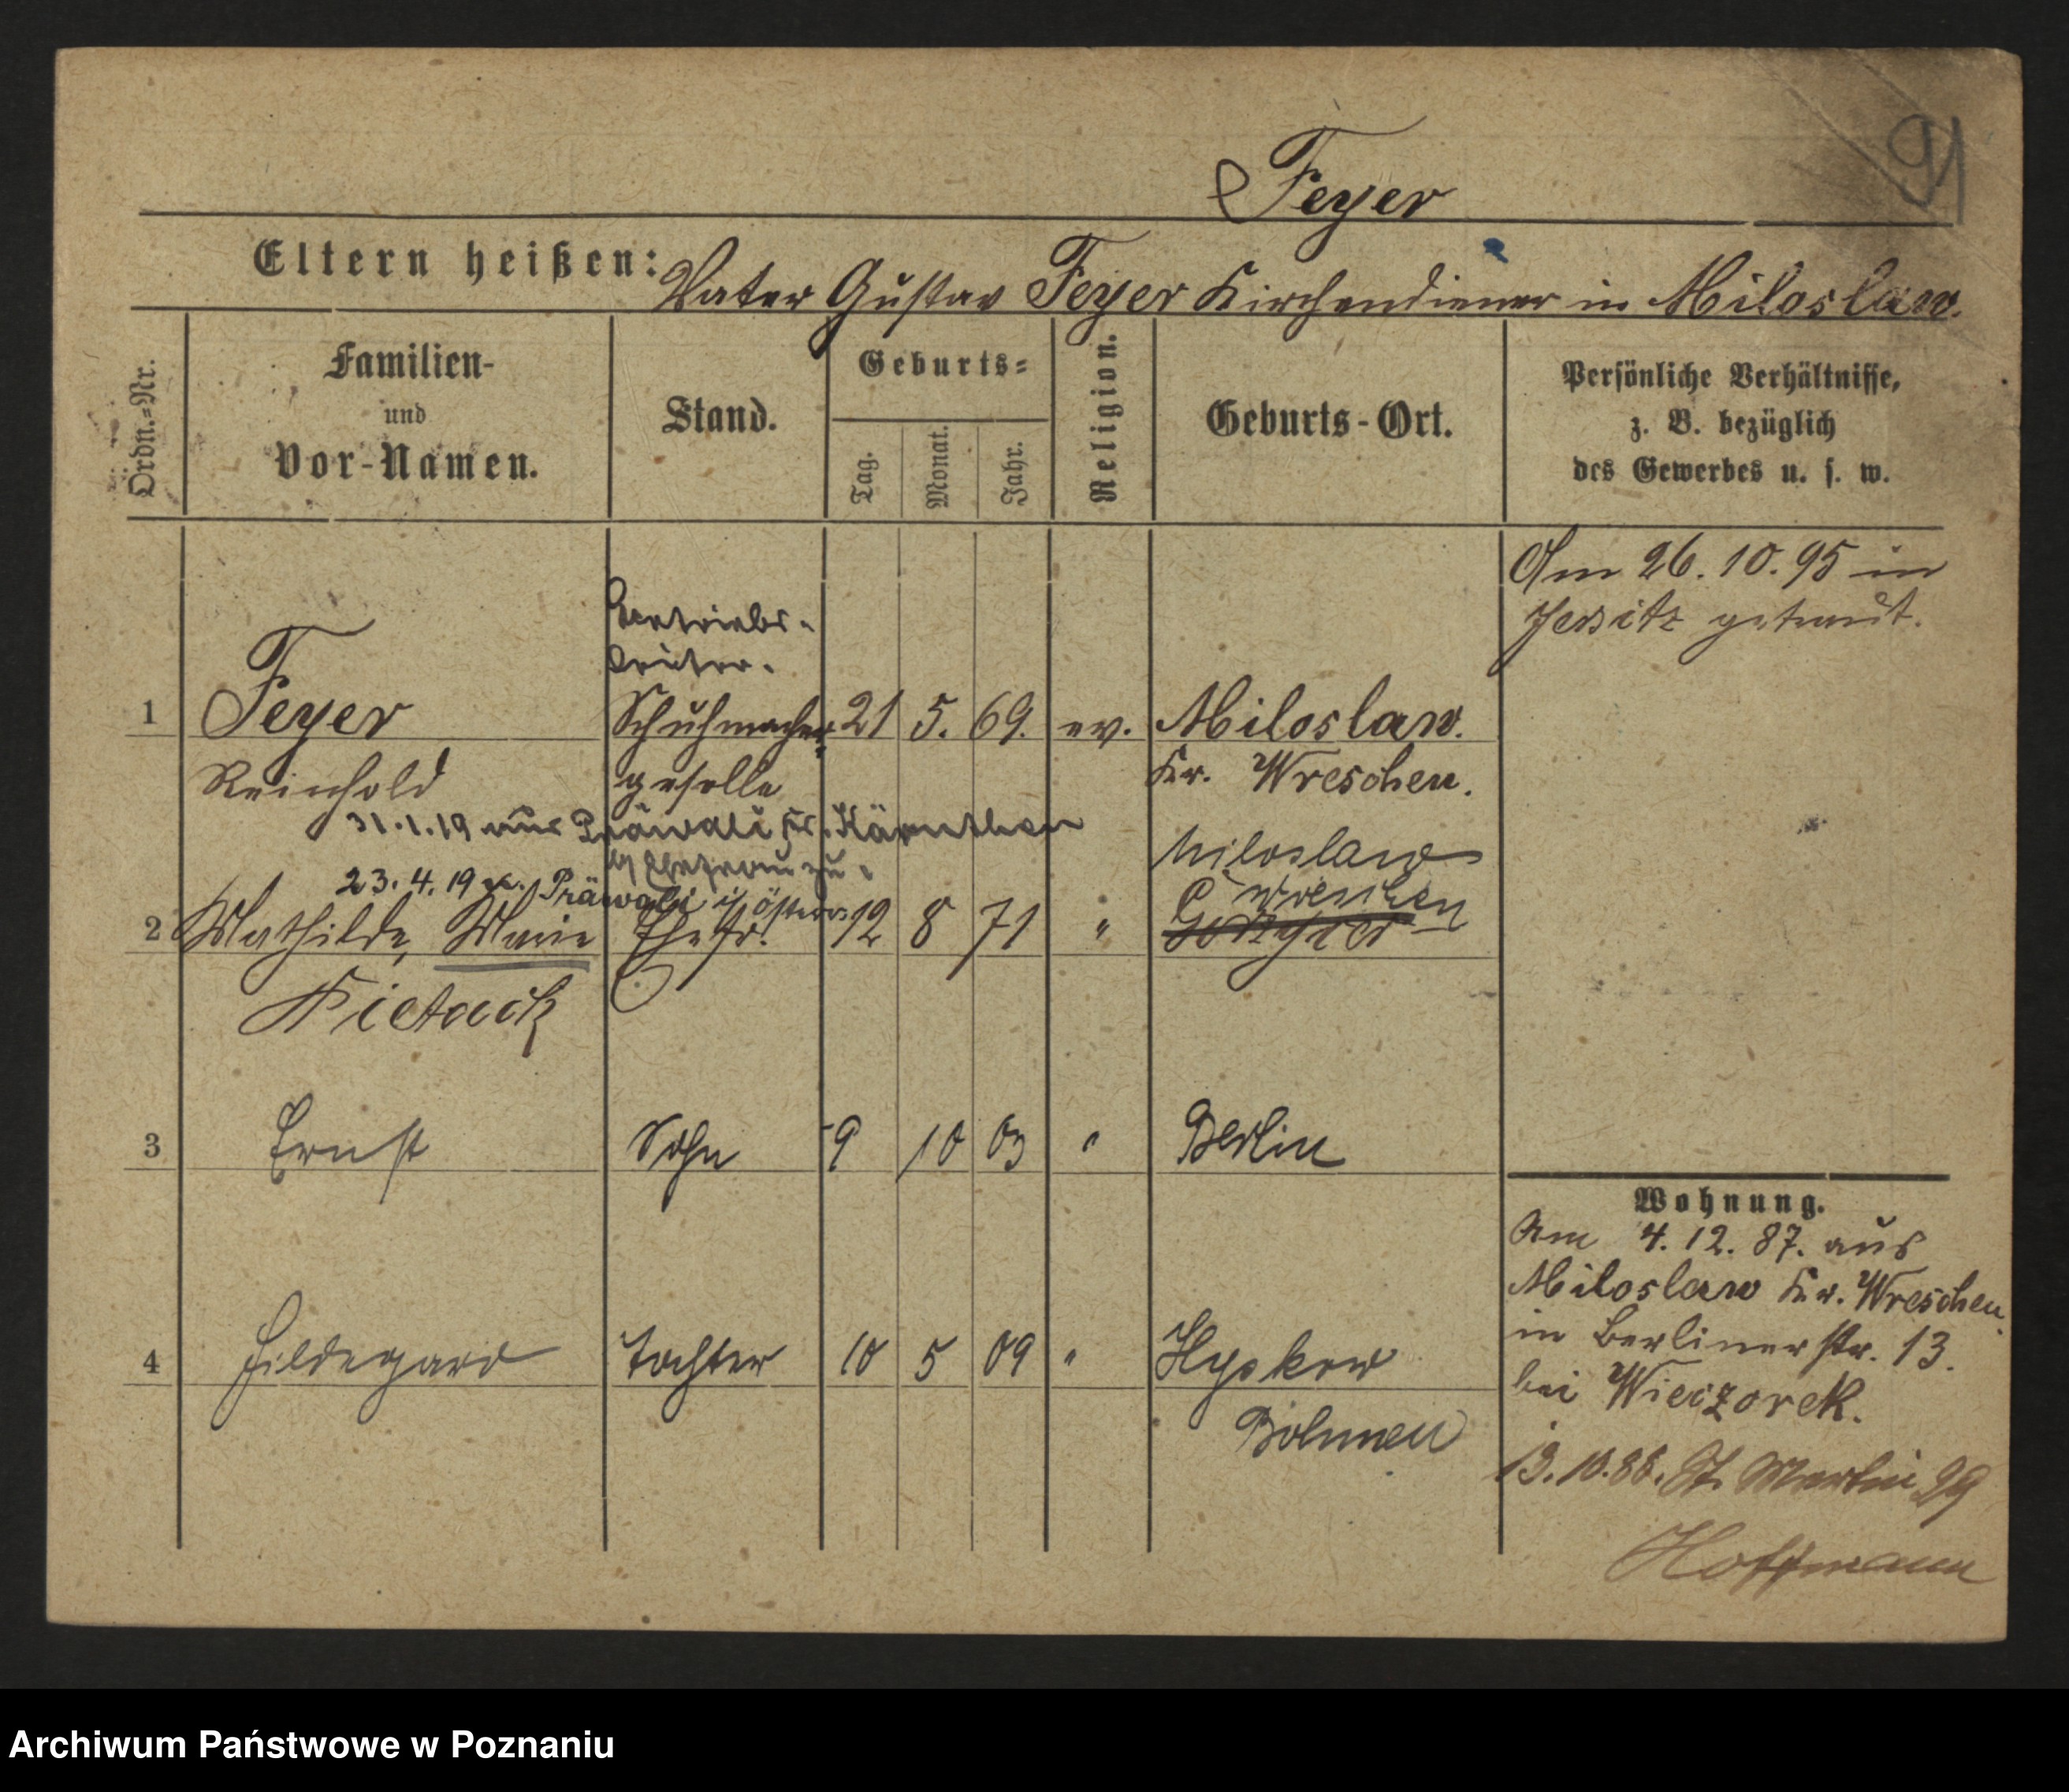 91
Feyer
Eltern heißen: Vater Gustav Feyer Kirchendiener in Miloslaw.
Ordn.=Nr.
Familien-
und
Vor-Namen.
Stand.
Geburts=
Tag.
Monat.
Jahr.
Religion.
Geburts-Ort.
Persönliche Verhältnisse,
z. B. bezüglich
des Gewerbes u. s. w.
Am 26. 10. 95 in
Jersitz getraut.
Betriebs-
leiter.
1 Feyer Schuhmacher 21 5. 69. ev. Miloslaw.
Reinhold geselle Kr. Wreschen.
31.1.19 aus Präwali Kr. Kärnthen
Ehefrau zu
Miloslaw
23.4.19 Präwali
Wreschen
2 Mathilde, Marie Ehefr. 12 8 71 "
Kietack
3 Ernst Sohn 9 10 03 " Berlin
4 Hildegard Tochter 10 5 09 " Hyskow
Böhmen
Wohnung.
Am 4. 12. 87. aus
Miloslaw Kr. Wreschen
in Berliner str. 13.
bei Wieczorek.
13.10.88. St. Martin 29
Hoffmann
Archiwum Państwowe w Poznaniu